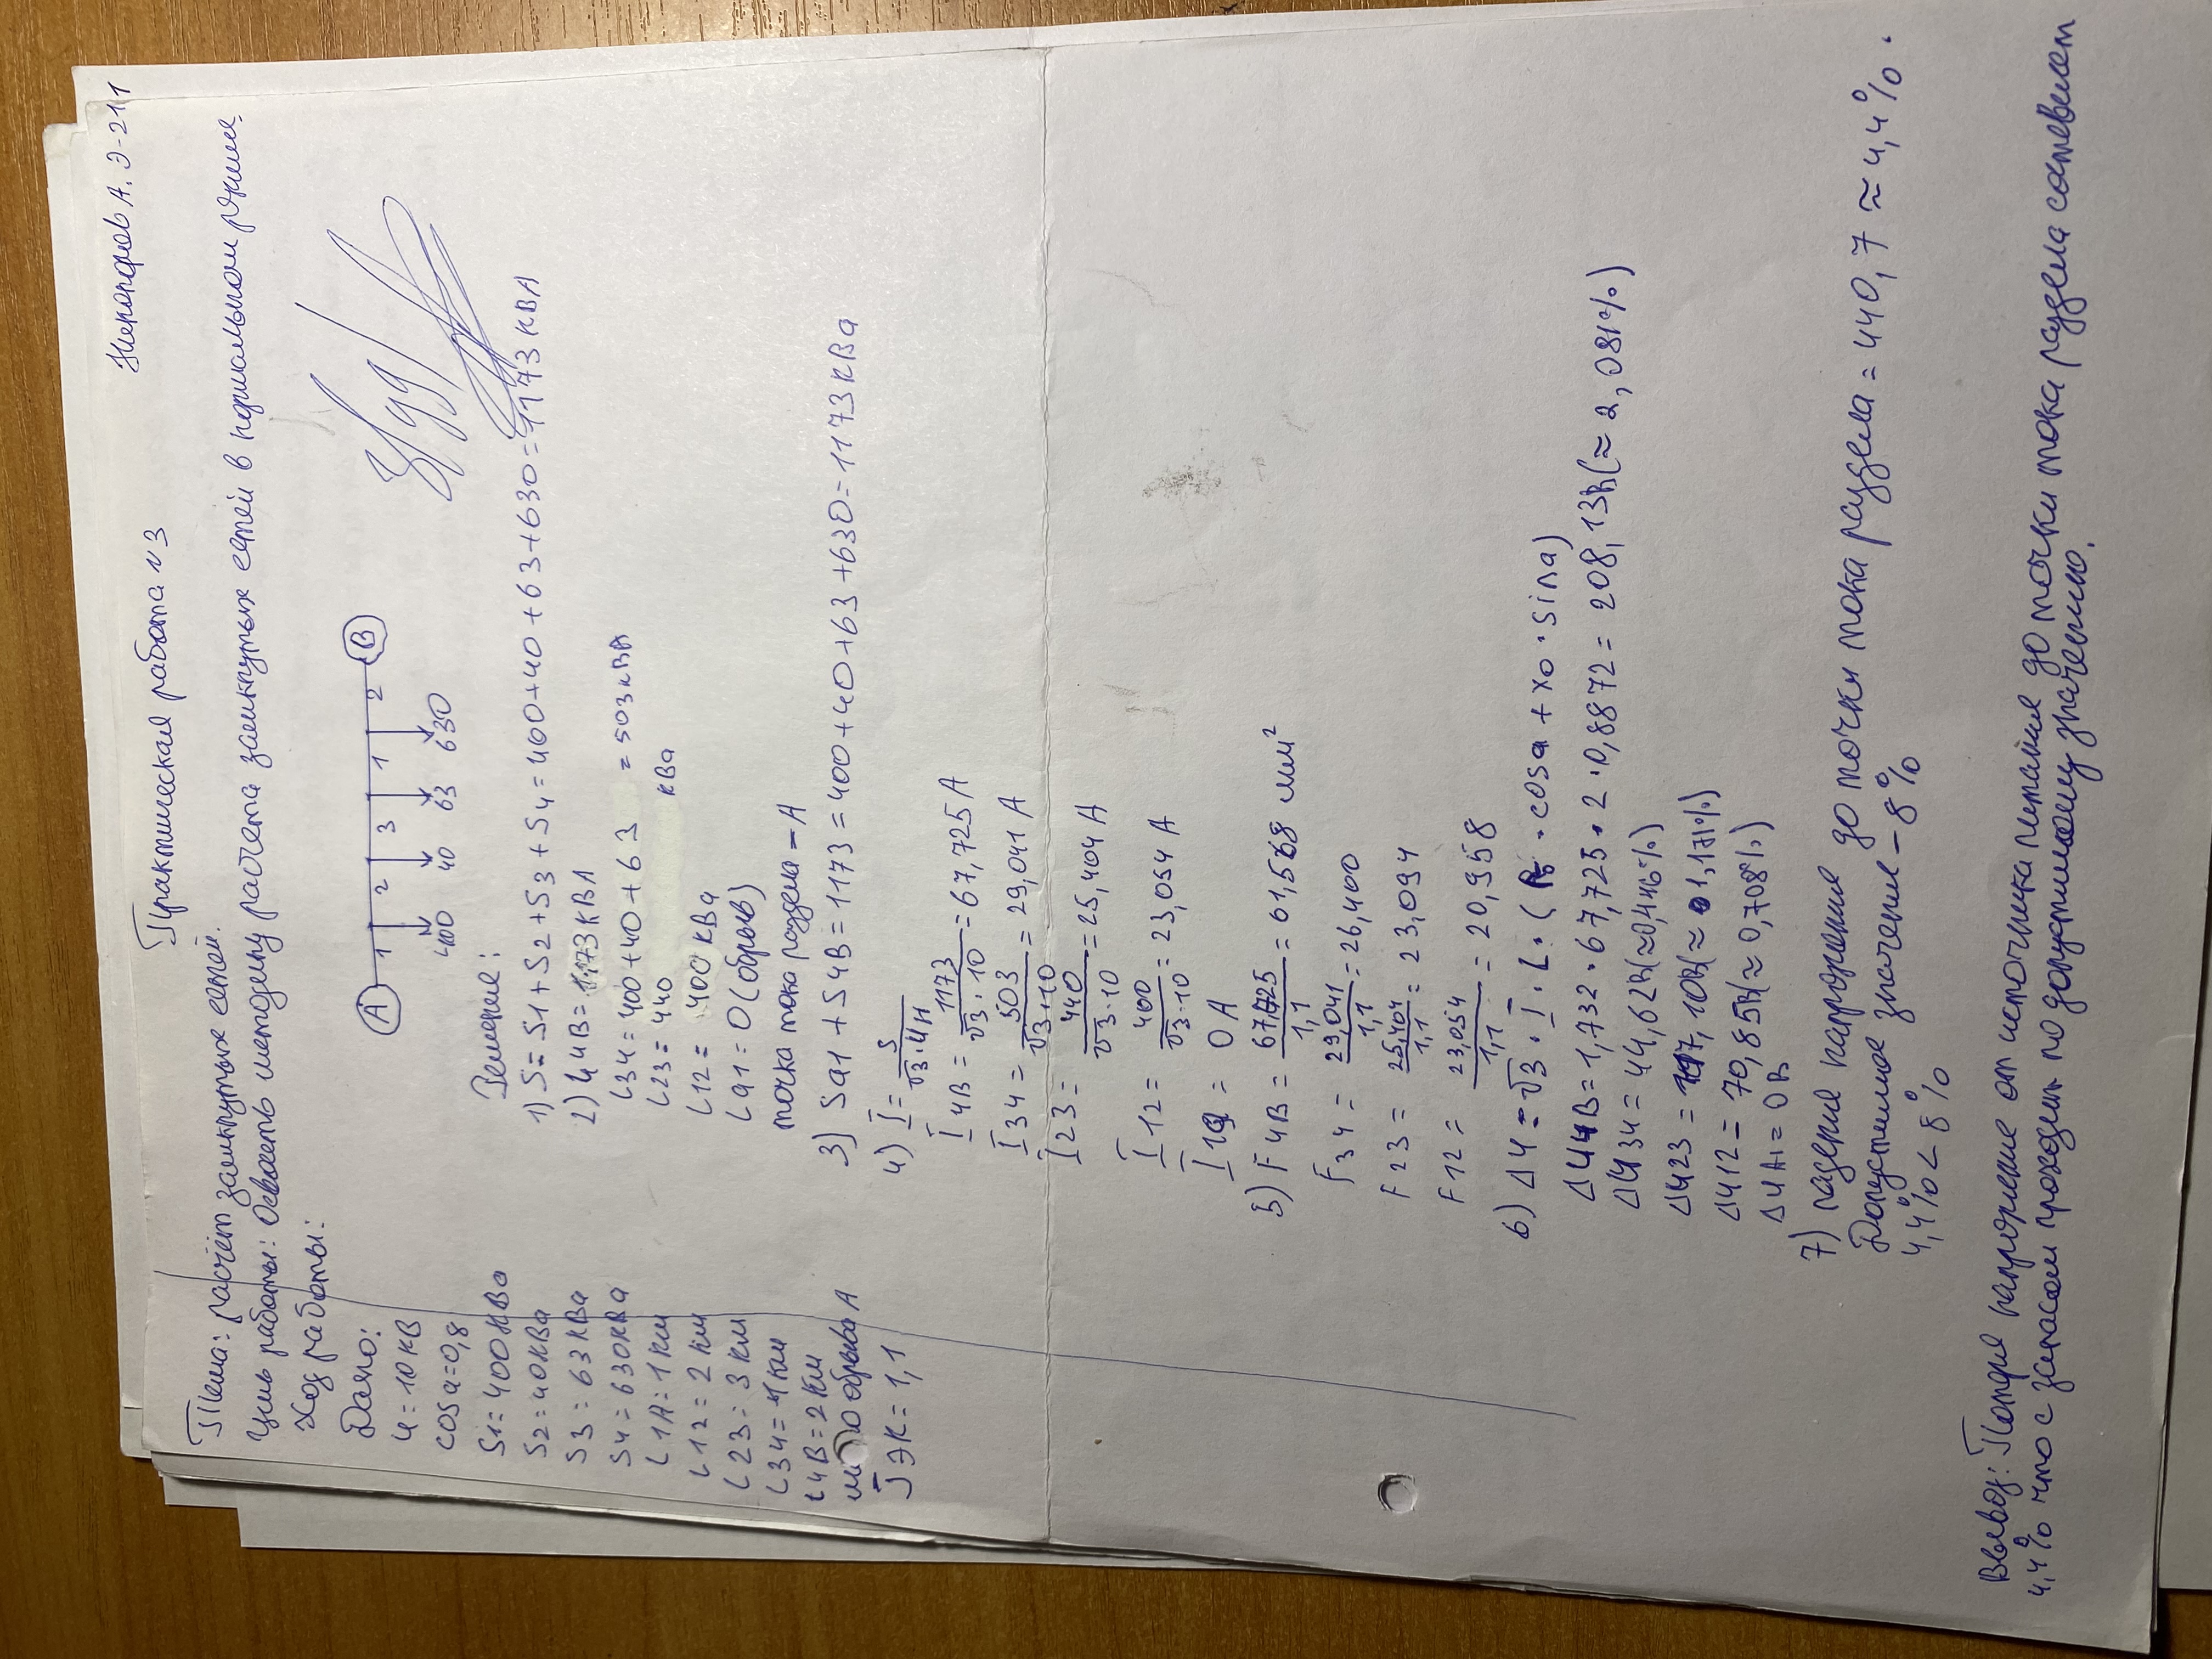 Никифоров А. Э-211
Практическая работа №3
Тема: расчёт замкнутых сетей.
Цель работы: Освоить методику расчёта замкнутых сетей в нормальном режиме.
Ход работы:
Дано:
U = 10 кВ
cosα = 0,8
S1 = 400 кВа
S2 = 40 кВа
S3 = 63 кВа
S4 = 630 кВа
L1A = 1 км
L12 = 2 км
L23 = 3 км
L34 = 1 км
L4B = 2 км
место обрыва А
JЭК = 1,1
A 1 2 3 1 2 B
400 40 63 630
Решение:
1) S = S1 + S2 + S3 + S4 = 400 + 40 + 63 + 630 = 1173 кВА
2) L4B = 1173 кВА
L34 = 400 + 40 + 63 = 503 кВА
L23 = 440 кВа
L12 = 400 кВа
La1 = 0 (обрыв)
точка тока раздела – А
3) Sa1 + S4B = 1173 = 400 + 40 + 63 + 630 = 1173 кВа
4) I = S / √3·Uн
I4B = 1173 / √3·10 = 67,725 А
I34 = 503 / √3·10 = 29,041 А
I23 = 440 / √3·10 = 25,404 А
I12 = 400 / √3·10 = 23,054 А
I1a = 0 А
5) F4B = 67,725 / 1,1 = 61,568 мм²
F34 = 29,041 / 1,1 = 26,400
F23 = 25,404 / 1,1 = 23,094
F12 = 23,054 / 1,1 = 20,958
6) ΔU = √3 · I · L · (R0 · cosα + x0 · sinα)
ΔU4B = 1,732 · 67,725 · 2 · 0,8872 = 208,13В (≈ 2,081%)
ΔU34 = 44,62В (≈ 0,446%)
ΔU23 = 117,10В (≈ 1,171%)
ΔU12 = 70,85В (≈ 0,708%)
ΔUA1 = 0 В
7) падение напряжения до точки тока раздела = 440,7 ≈ 4,4%.
Допустимое значение – 8%
4,4% < 8%
Вывод: Потеря напряжения от источника питания до точки тока раздела составляет
4,4% что с запасом проходит по допустимому значению.